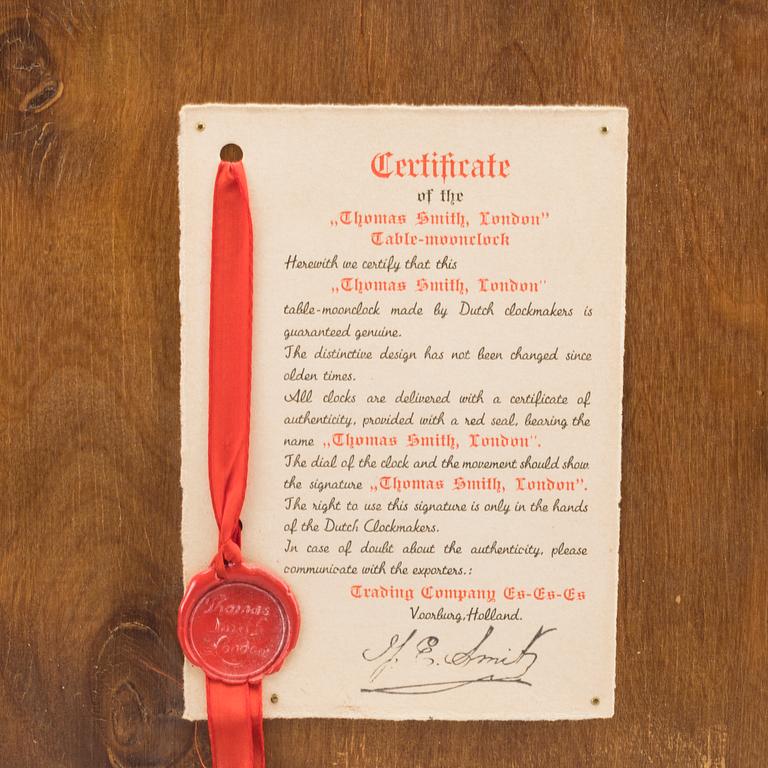 Certificate
of the
„Thomas Smith, London”
Table-moonclock
Herewith we certify that this
„Thomas Smith, London”
table-moonclock made by Dutch clockmakers is
guaranteed genuine.
The distinctive design has not been changed since
olden times.
All clocks are delivered with a certificate of
authenticity, provided with a red seal, bearing the
name „Thomas Smith, London”.
The dial of the clock and the movement should show
the signature „Thomas Smith, London”.
The right to use this signature is only in the hands
of the Dutch Clockmakers.
In case of doubt about the authenticity, please
communicate with the exporters.:
Trading Company Es-Es-Es
Voorburg, Holland.
Smith
Thomas
Smith
London